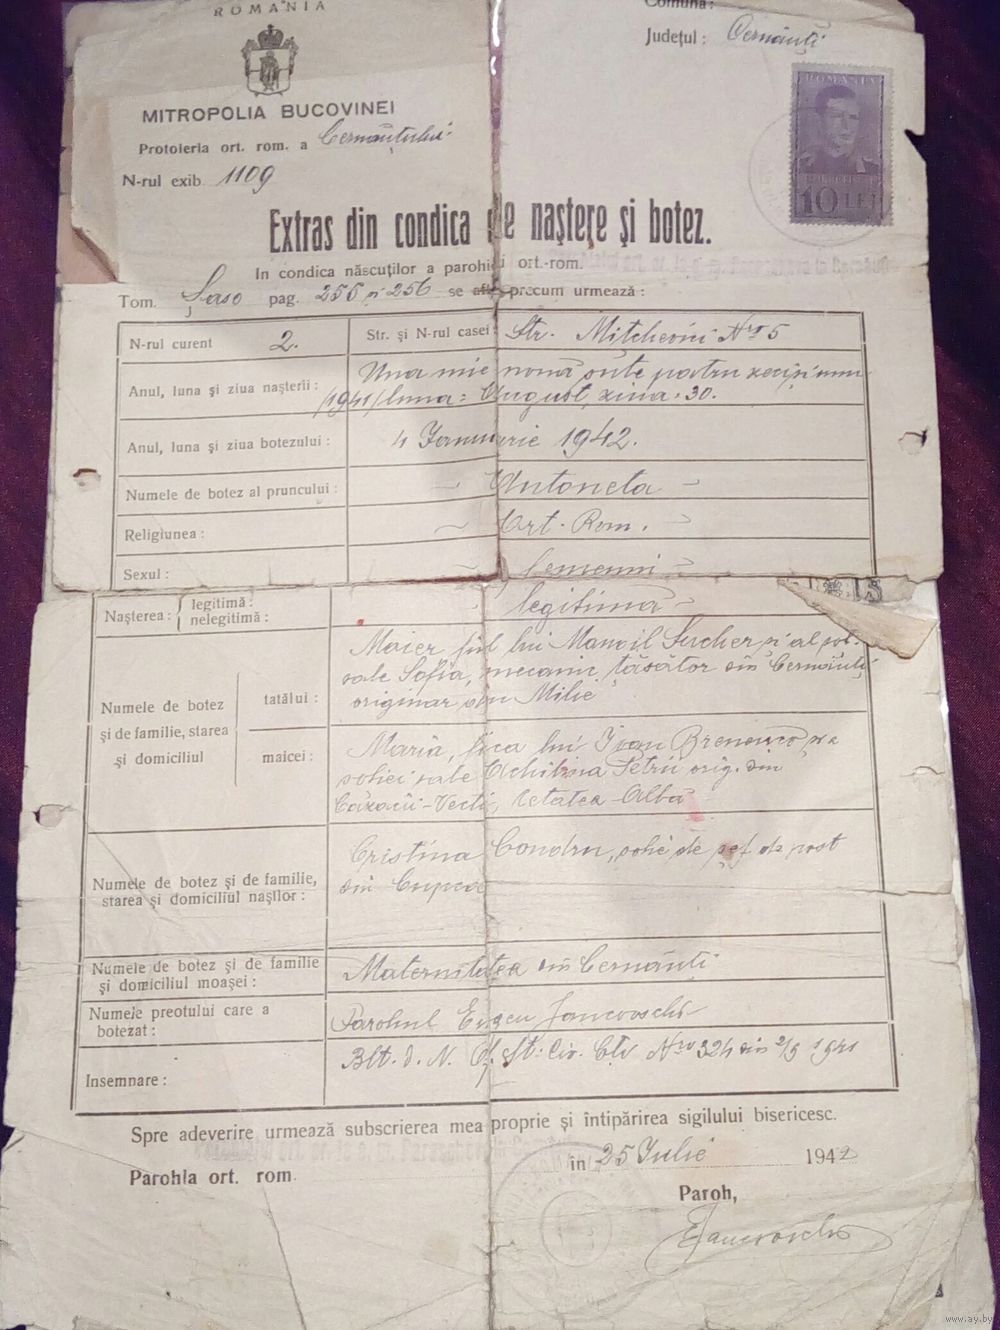 ROMANIA
MITROPOLIA BUCOVINEI
Protoieria ort. rom. a Cernăuțului
N-rul exib. 1109
Comuna:
Județul: Cernăuți
ROMANIA
10 LEI
Extras din condica de naștere și botez.
In condica născuților a parohiei ort.-rom.
Tom. Șase pag. 255 și 256 se află precum urmează:
N-rul curent 2. Str. și N-rul casei: Str. Mitchevici Nro 5
Anul, luna și ziua nașterii: Una mie nouă sute patru zeci și unu
/1941/ luna: August, ziua: 30.
Anul, luna și ziua botezului: 4 Ianuarie 1942.
Numele de botez al pruncului: Antoneta
Religiunea: Ort. Rom.
Sexul: femenin
Nașterea: legitimă: nelegitimă: legitimă
Numele de botez și de familie, starea și domiciliul
tatălui: Maier fiul lui Manoil Sucher și al soț.
sale Sofia, mecanic, țăsător din Cernăuți
originar din Milie
maicei: Maria, fiica lui Ivan
soției sale Achilina Petru orig. din
Cazacii-Vechi, Cetatea-Albă
Numele de botez și de familie, starea și domiciliul nașilor: Cristina Condru, soție de șef de post
din Cupca
Numele de botez și de familie și domiciliul moașei: Maternitatea din Cernăuți
Numele preotului care a botezat: Parohul Eugen Jancovschi
Insemnare: Blt. d. N. Of. St. Civ. Nro 324 din 2/9 1941
Spre adeverire urmează subscrierea mea proprie și întipărirea sigilului bisericesc.
în 25 Iulie 1942
Parohia ort. rom.
Paroh,
EJancovschi
www.ay.by